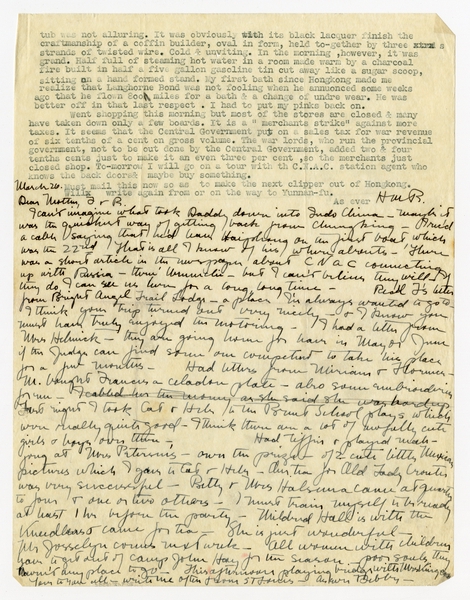 tub was not alluring. It was obviously with its black lacquer finish the
craftmanship of a coffin builder, oval in form, held to-gether by three xtra
strands of twisted wire. Cold & unviting. In the morning ,however, it was
grand. Half full of steaming hot water in a room made warm by a charcoal
fire built in half a five gallon gasoline tin cut away like a sugar scoop,
sitting on a hand formed stand. My first bath since Hongkong made me
realize that Langhorne Bond was not fooling when he announced some weeks
ago that he flown 800 miles for a bath & a change of undre wear. He was
better off in that last respect . I had to put my pinks back on.
Went shopping this morning but most of the stores are closed & many
have taken down only a few boards. It is a " merchants strike" against more
taxes. It seems that the Central Government put on a sales tax for war revenue
of six tenths of a cent on gross volume. The war lords, who run the provincial
government, not to be out done by the Central Government, added two & four
tenths cents just to make it an even three per cent , so the merchants just
closed shop. To-morow I will go on a tour with th C.N.A.C. station agent who
knows the back doors & maybe buy something.
Must mail this now so as to make the next clipper out of Hongkong.
Willx write again from or on the way to Yunnan-fu.
As ever
H M B.
March 20.
Dear Mother, F & R.
I can't imagine what took Daddy down into Indo China - maybe it
was the quickest way of getting back from Chungking -
a cable saying that he'd leave Hongkong on the first boat which
was the 22nd - That is all I know of his whereabouts - There
was a short article in the newspaper about C N A C connecting
up with Russia - but I can't believe they will - If
they do I can see us here for a long, long time - Read F's letter
from Bright Angel Trail Lodge - a place I'm always wanted to go to -
I think your trip turned out very nicely - & I know you
must have truly enjoyed the motoring. I had a letter from
Mrs Helmick - they are going home for leave in May or June
if the Judge can find some one competent to take his place
for a few months. Had letters from Miriam &
M. bought Frances a celadon plate - also some embroideries
for me - I cabled her the money as she said she was
Last night I took Cat & Hele to the Brent School plays which
were really quite good - I think there are a lot of awfully cute
girls & boys over there, Had tiffin & played mah-
jong at Mrs Peterson's - won the prize of 2 cute little Mexican
pictures which I gave to Cat & Hele - Our tea for Old Lady
was very successful - Betty & Mrs Halsema came at quarter
to four & one or two others - I must train myself to be ready
at least 1 hr before the party - Mildred Hall is with the
& came for tea - She is just wonderful -
Mr Josselyn comes next week - All women with children
have to get out of Camp John Hay for the season - poor souls they
haven't any place to go - This afternoon playing bridge with Mrs
Love to you all - write me often from St Louis & ask